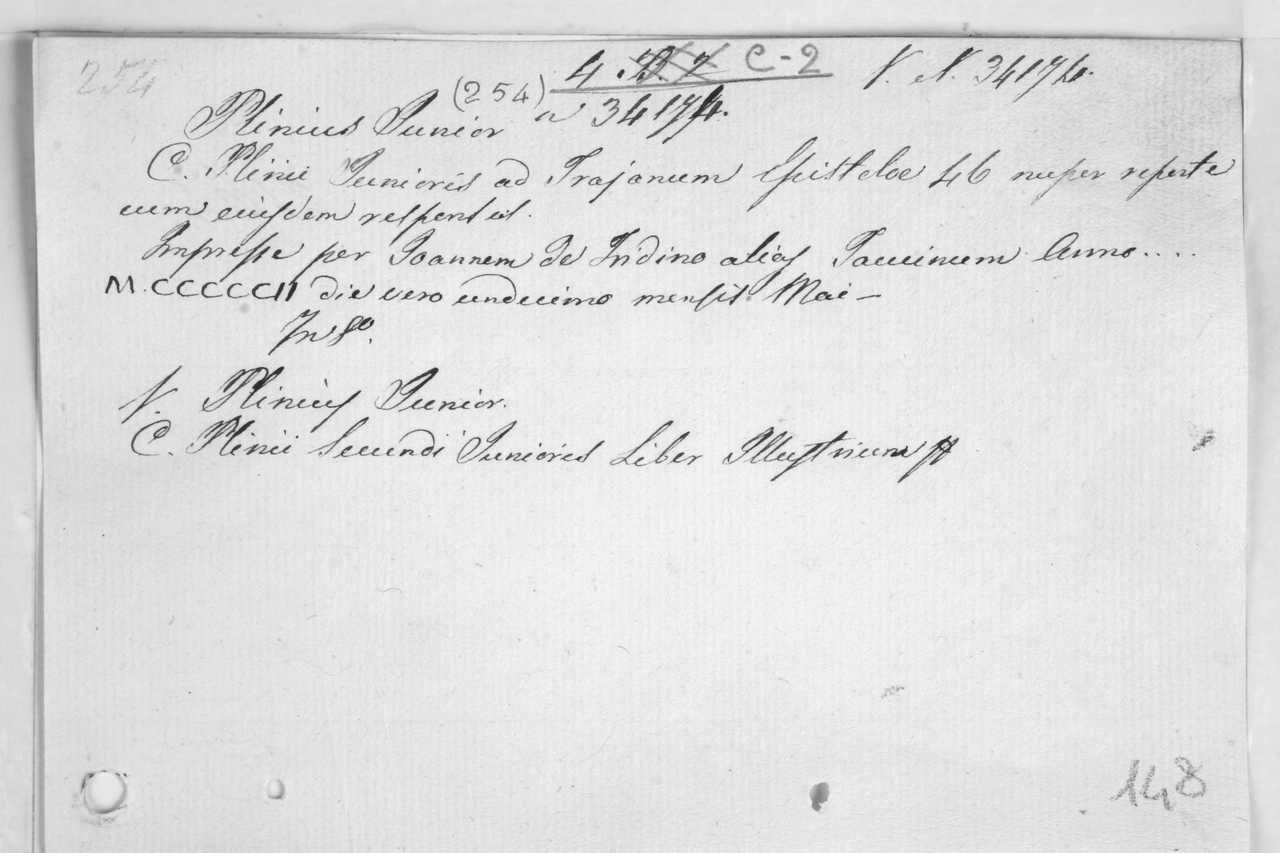 254
4. B. 7 C-2 V. N. 34174.
(254)
Plinius Junior a 34174.
C. Plinii Junioris ad Trajanum Epistolae 46 nuper reperte
cum eiusdem responsis.
Impresse per Joannem de Tridino alias Tacuinum Anno....
M.CCCCCII die vero undecimo mensis Mai -
In 8º.
V. Plinius Junior.
C. Plinii Secundi Junioris Liber Illustrium
148